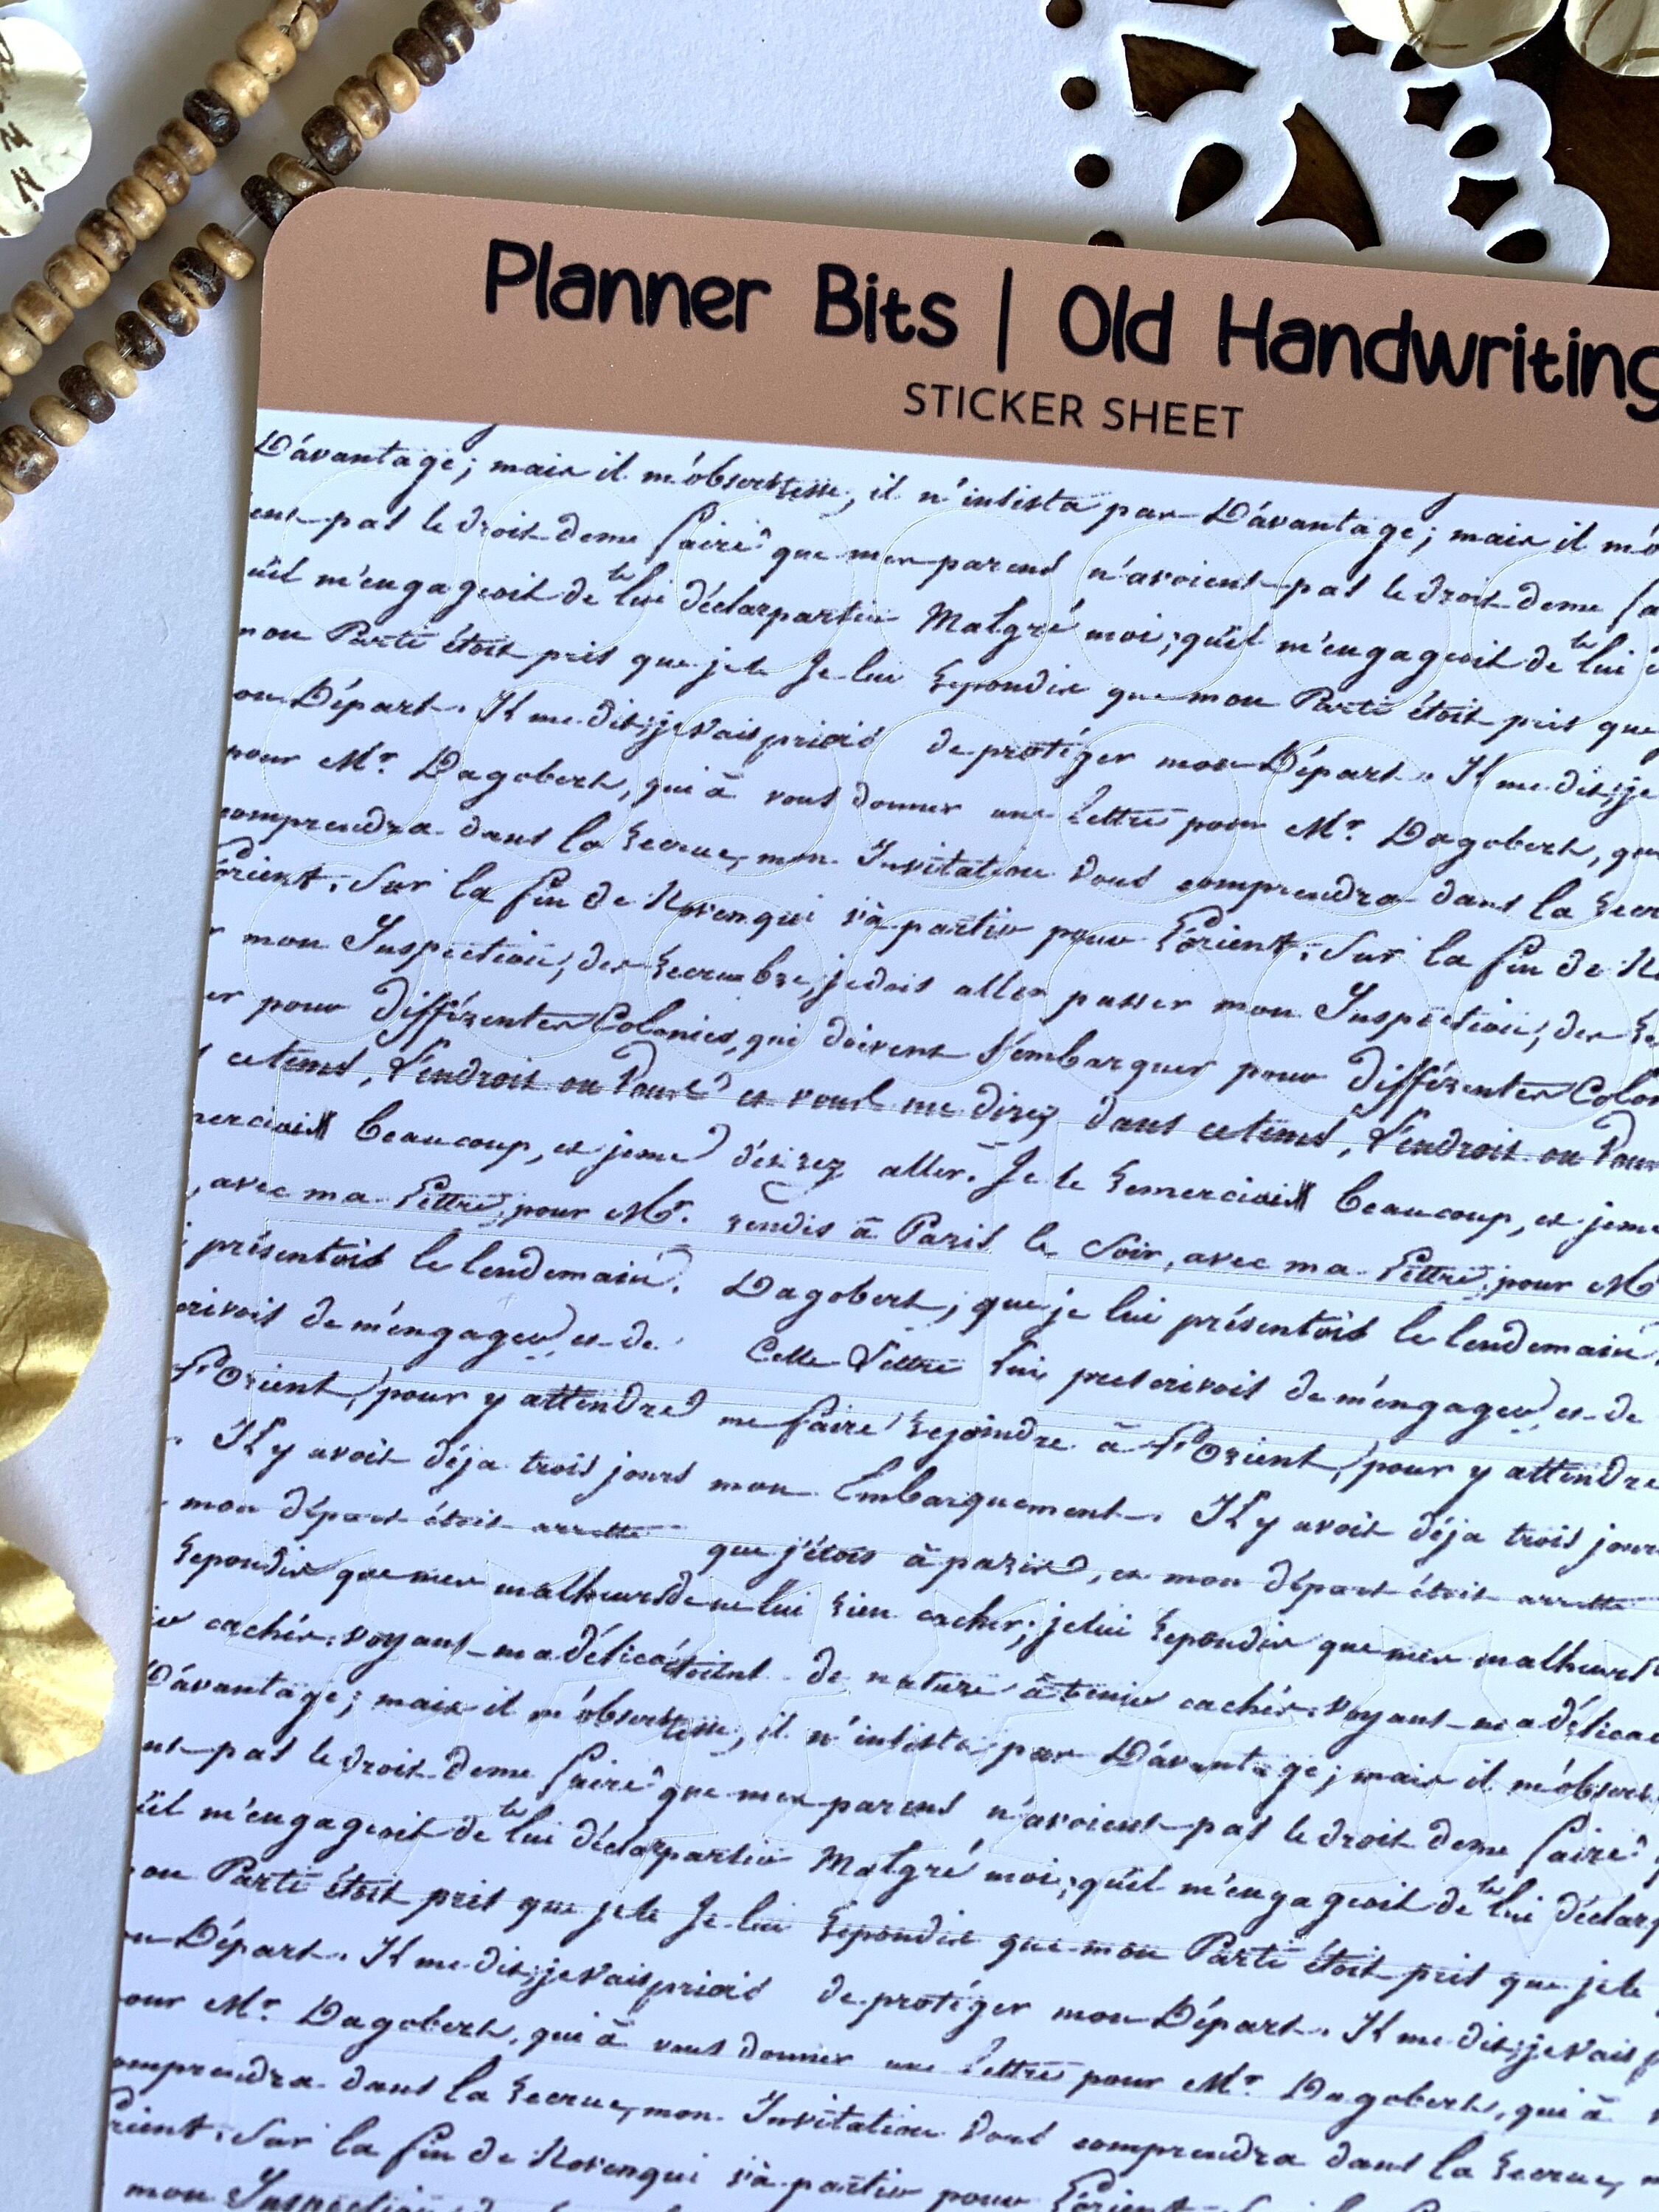 Planner Bits | Old Handwriting
STICKER SHEET
Dávantage; mais il m'obser il n'insista par Dávantage; mais il m'o
pas le droit deme faire que mer parens n'avoient pas le droit deme
uil m'engageoit de lui déclar partir Malgré moi; qu'il m'engageoit de lui
mon Parti étoit pris que je le Je lui Repondis que mon Parti étoit pris que
on Départ. Il me dit; je Vais de protéger mon Départ. Il me dit; je
pour Mr. Dagobert, qui à vous donner une lettre pour Mr. Dagobert,
comprendra dans la Recrue, mon Invitation Vous comprendra dans la
orient. Sur la fin de partir pour Lorient. Sur la fin de
r mon Inspection, der je dois aller passer mon Inspection; der
er pour différenter Colonies, qui doivent S'embarquer pour différenter Colon
cetems, L'endroit ou vous me direz dans cetems, L'endroit ou
merciai beaucoup, et jeme désirez aller. Je le Remerciai beaucoup, et jeme
, avec ma Lettre, pour Mr. rendis à Paris le Soir, avec ma Lettre, pour Mr
présentois le lendemain. Dagobert, que je lui présentois le lendemain
crivoit de méngager et de Cette Lettre lui prescrivoit de méngager et de
L'Orient, pour y attendre me faire Rejoindre à L'Orient, pour y attendre
. Il y avoit déja trois jours mon Embarquement. Il y avoit déja trois jours
mon départ étoit arretté que j'étois à paris, et mon départ étoit arretté
Repondis que mer malheurs de ne lui Rien cacher; je lui Repondis que mer malheurs
cachér. Voyant ma délica de nature à tenir cachér. Voyant ma délica
Dávantage; mais il m'obser il n'insista par Dávantage; mais il m'obser
nt pas le droit deme faire que mer parens n'avoient pas le droit deme faire
uil m'engageoit de lui déclar partir Malgré moi; qu'il m'engageoit de lui déclar
on Parti étoit pris que je le Je lui Repondis que mon Parti étoit pris que je le
Départ. Il me dit; je Vais de protéger mon Départ. Il me dit; je Vais
our Mr. Dagobert, qui à vous donner une lettre pour Mr. Dagobert, qui à
omprendra dans la Recrue, mon Invitation Vous comprendra dans la Recrue,
rient. Sur la fin de partir pour Lorient. Sur la fin
mon Inspection